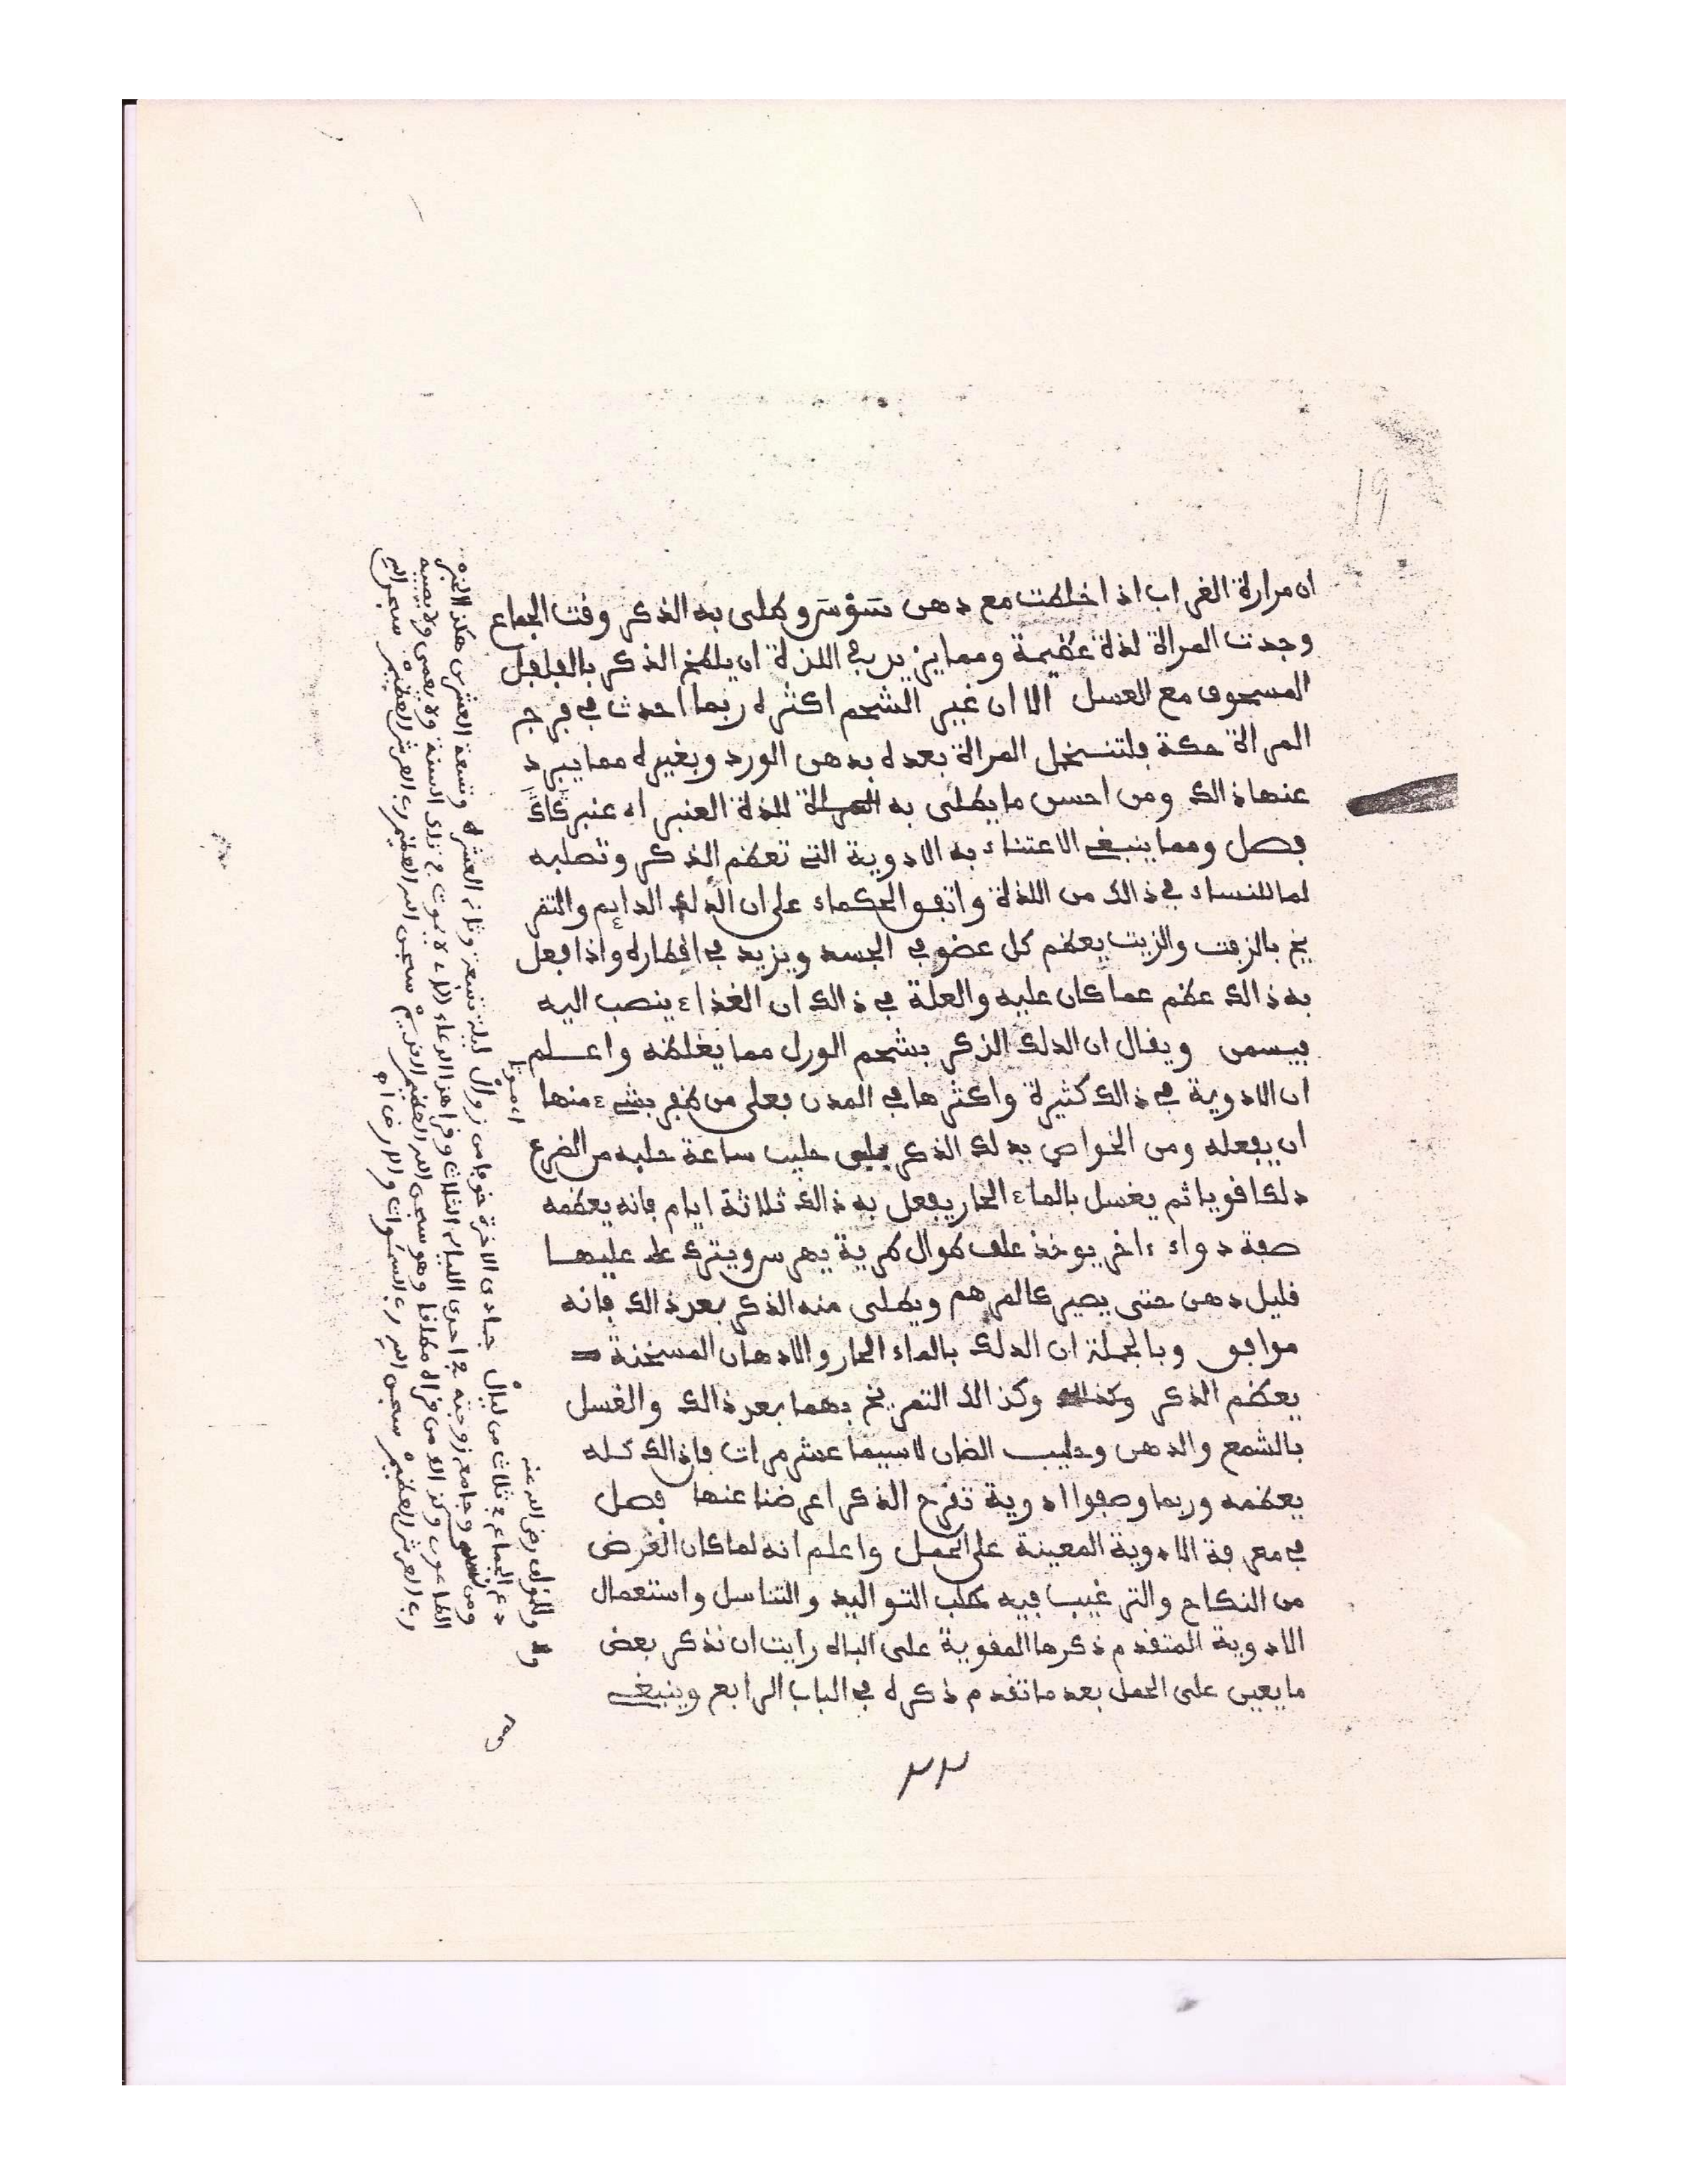 19
ان مرارة الغراب اذا خلطت مع دهن سوسن وطلى به الذكر وقت الجماع
وجدت المراة لذة عظيمة ومما يزيد في اللذة ان يلطخ الذكر بالفلفل
المسحوق مع العسل الا ان غير الشحم اكثره ربما احدث في فرج
المراة حكة فلتتـحمل المراة بعده بدهن الورد وبغيره مما يبرد
عنها ذالك ومن احسن ما يطلى به للذة العنبر اه عنبر كاك
فصل ومما ينبغي الاعتناء به الادوية التي تعظم الذكر وتصلبه
لما للنساء في ذالك من اللذة واتفق الحكماء على ان الدلك الدايم والتمر
يخ بالزفت والزيت يعظم كل عضو في الجسد ويزيد في افطاره واذا فعل
به ذالك عظم عما كان عليه والعلة في ذالك ان الغذاء ينصب اليه
فيسمن ويقال ان الدلك الذكر بشحم الورل مما يغلظه واعلم
ان الادوية في ذالك كثيرة واكثرها في المدن فعلى من ظفر بشيء منها
ان يفعله ومن الخواص يدلك الذكر بلبن حليب ساعة حلبه من الضرع
دلكا قويا ثم يغسل بالماء الحار يفعل به ذالك ثلاثة ايام فانه يعظمه
صفة دواء ءاخر يوخذ علف طوال طرية يهرس ويترك عليها
قليل دهن حتى يصير كالمرهم ويطلى منه الذكر بعد ذالك فانه
موافق وبالجملة ان الدلك بالماء الحار والادهان المسخنة
يعظم الذكر وكذالك التمريخ بهما بعد ذالك والغسل
بالشمع والدهن وحليب الضان لاسيما عشر مرات فان ذالك كله
يعظمه وربما وصفوا ادوية تقرح الذكر اعرضنا عنها فصل
في معرفة الادوية المعينة على الحمل واعلم انه لما كان الغرض
من النكاح والترغيب فيه طلب التواليد والتناسل واستعمال
الادوية المتقدم ذكرها المقوية على الباه رايت ان نذكر بعض
ما يعين على الحمل بعد ما تقدم ذكره في الباب الرابع وينبغي
وللمولف رضي الله عنه
دع الجماع في ثلاث من ليال جمادى الاخرة خوفا من زوال ليلة تسعة وثاني العشره وتسعة العشرين هكذا الخبر
ومن وجامع زوجته في احدى الليالي الثلاث وقرا هذا الدعاء لا يموت في ذلك السنة ولا يعمى ولا يصيبه
الطاعون وكذالك من قراه مطلقا وهو سبحن الله العظيم الكريم سبحن الله العظيم رب العرش العظيم سبحن الله
رب العرش العظيم سبحن الله رب السموات والارض اه